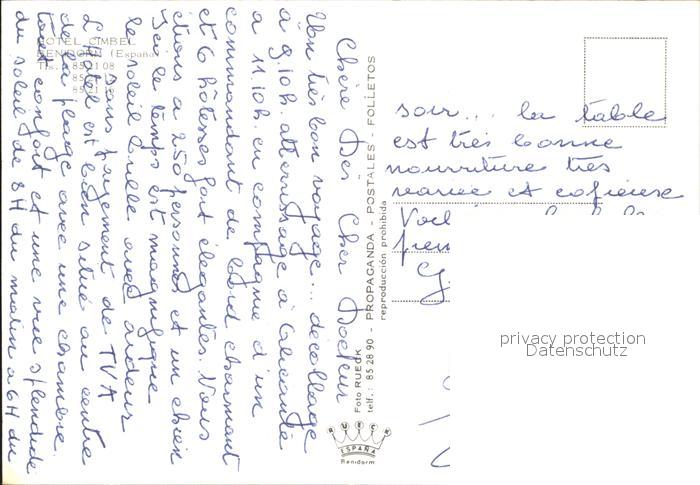 HOTEL CIMBEL
BENIDORM (España)
Tls. 85 21 08
Chère Dés Cher Docteur
Un très bon voyage... décollage
à 9.10h. atterrissage à Alicante
à 11.10h. en compagnie d'un
commandant de bord charmant
et 6 hôtesses fort élégantes. Nous
étions à 250 personnes et un chien
Ici le temps est magnifique
le soleil brille avec ardeur
sans payement de TVA
L'Hotel est bien situé au centre
de la plage avec une chambre
tout confort et une vue splendide
du soleil de 8H du matin à 6H du
soir... la table
est très bonne
nourriture très
variée et copieuse
Foto RUECK
telf.: 85 28 90 - PROPAGANDA - POSTALES - FOLLETOS
reproducción prohibida
RUECK
ESPAÑA
Benidorm
privacy protection
Datenschutz